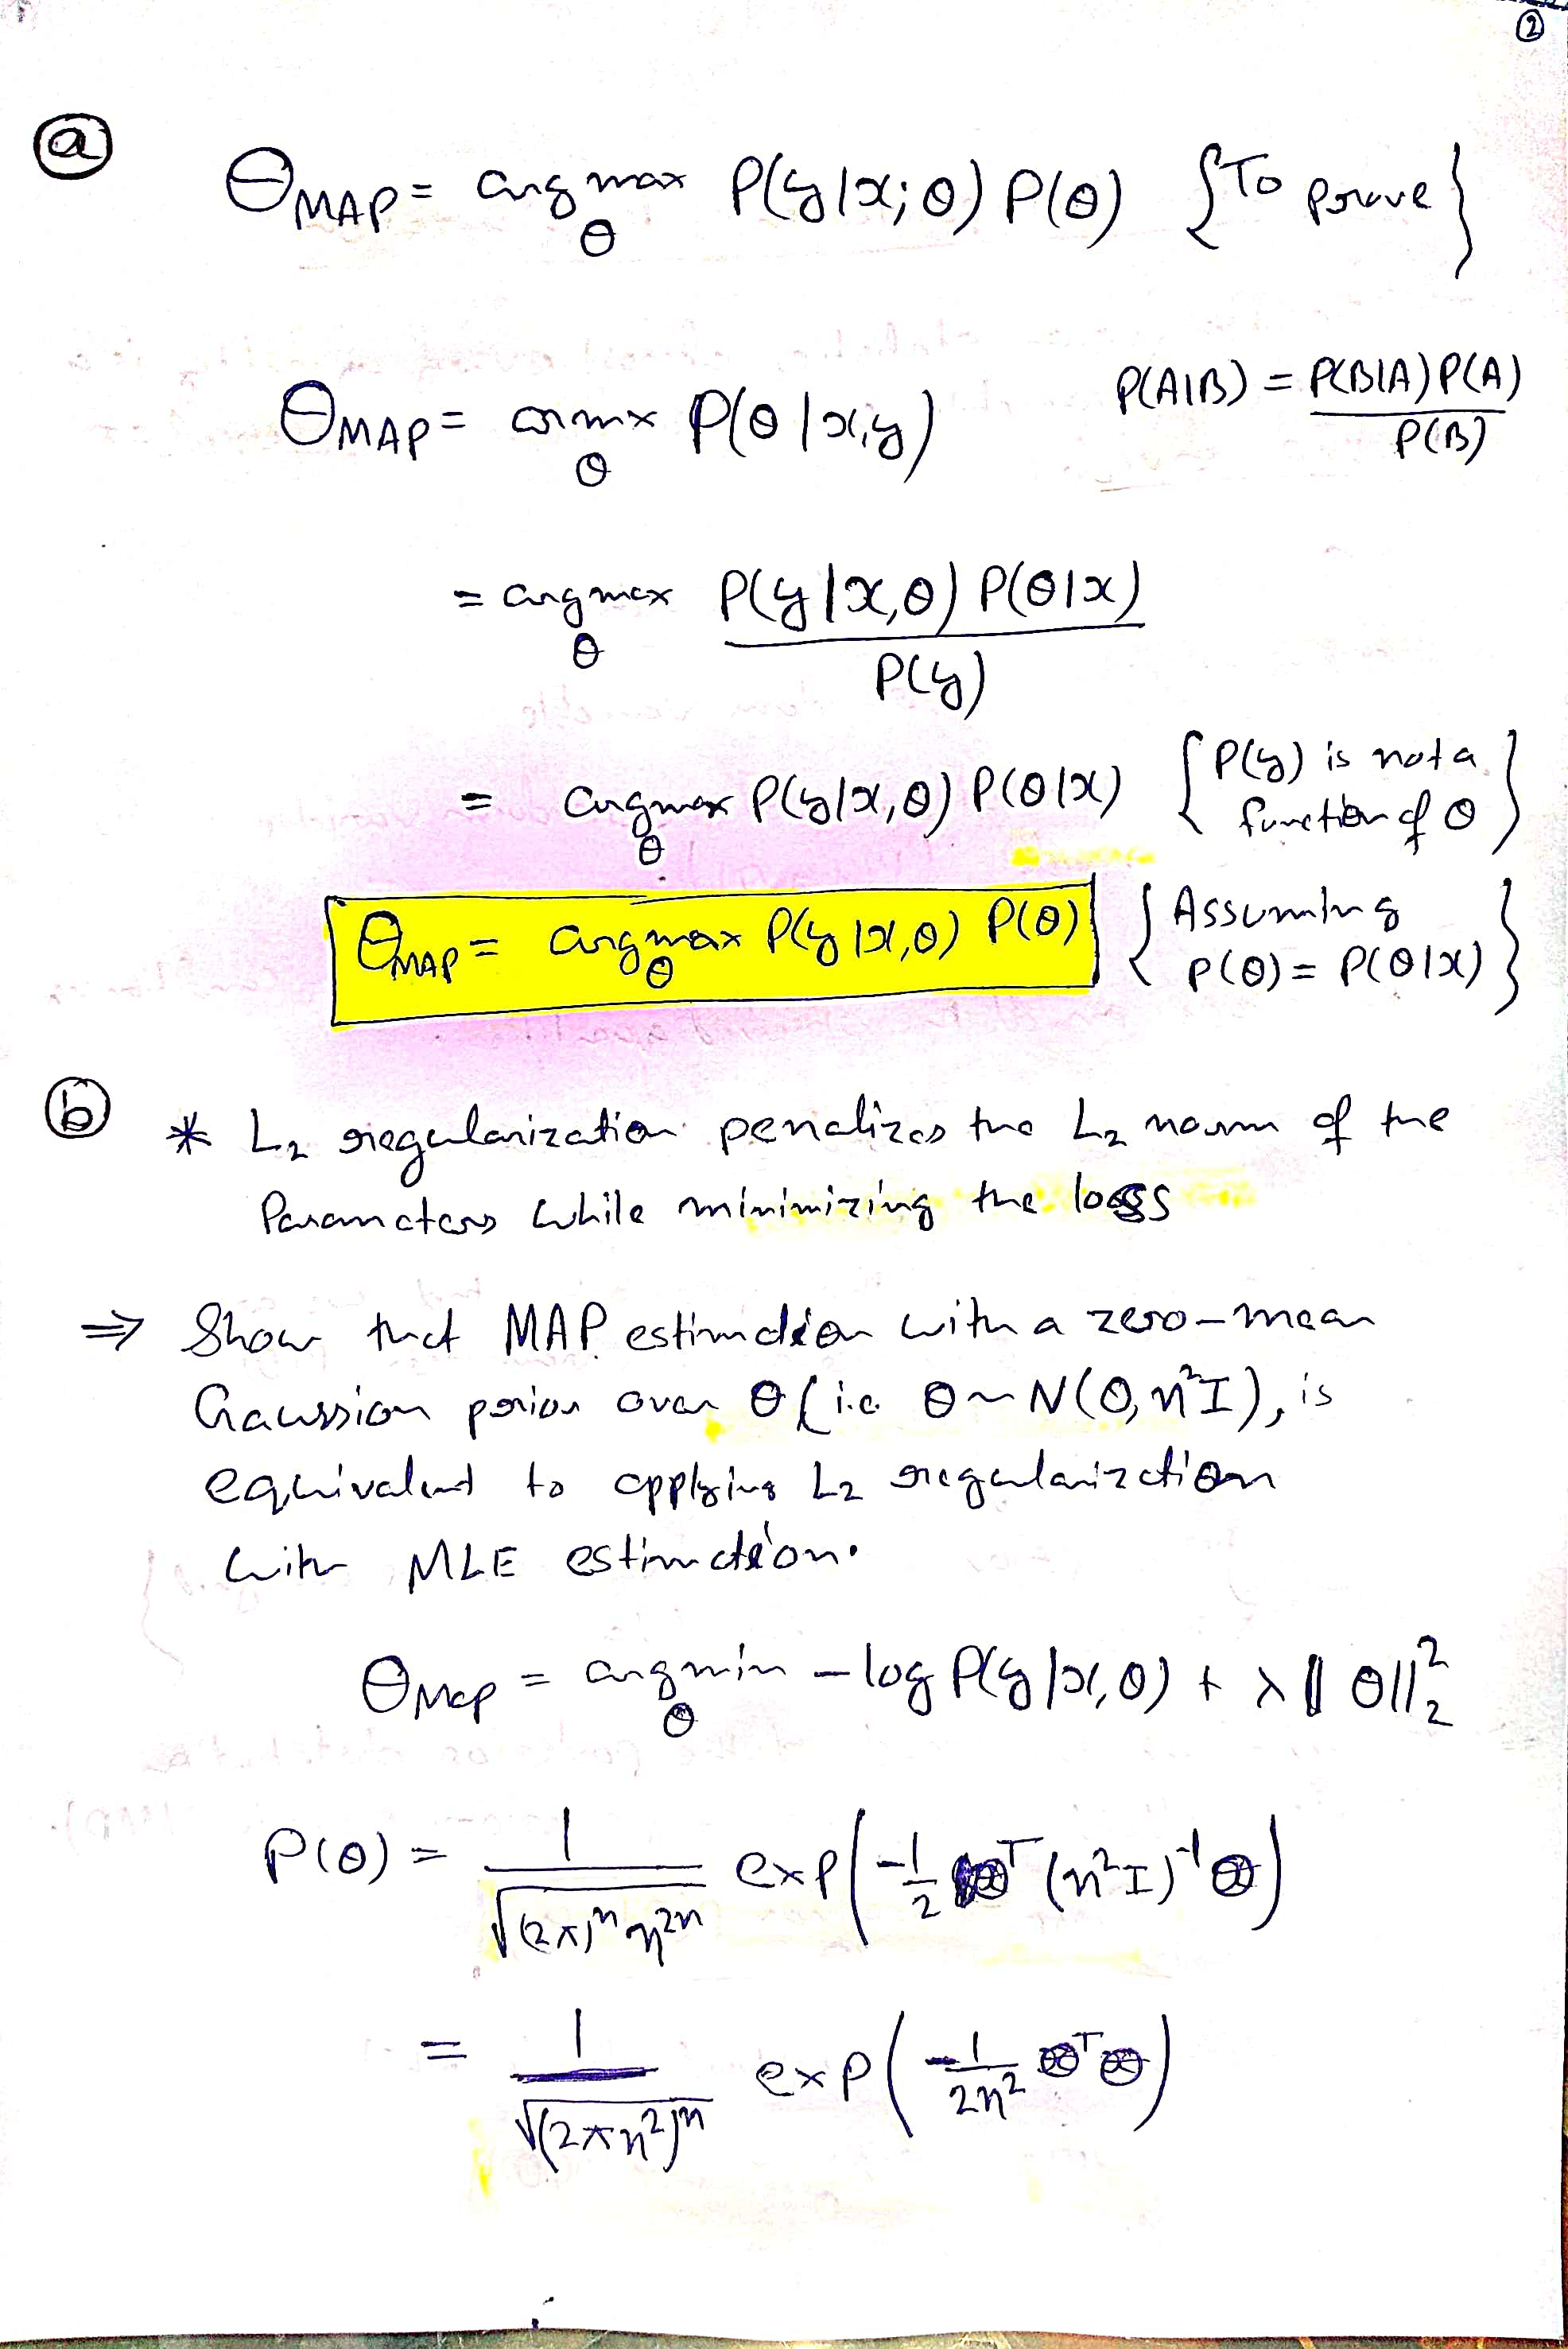 ②
ⓐ θMAP = argmax P(y|x; θ) P(θ) {To prove}
θ
θMAP = argmax P(θ|x,y) P(A|B) = P(B|A) P(A)
θ P(B)
= argmax P(y|x,θ) P(θ|x)
θ P(y)
= argmax P(y|x,θ) P(θ|x) {P(y) is not a function of θ}
θ
θMAP = argmax P(y|x,θ) P(θ) {Assuming P(θ) = P(θ|x)}
θ
ⓑ * L2 regularization penalizes the L2 norm of the
Parameters while minimizing the loss
⇒ Show that MAP estimation with a zero-mean
Gaussian prior over θ (i.e. θ ~ N(0, η²I), is
equivalent to applying L2 regularization
with MLE estimation.
θMap = argmin - log P(y|x,θ) + λ||θ||₂²
θ
P(θ) = 1/√((2π)ⁿ η²ⁿ) exp(-1/2 θᵀ (η²I)⁻¹ θ)
= 1/√((2πη²)ⁿ) exp(-1/2η² θᵀθ)